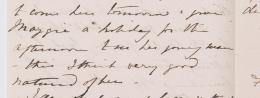 & come here tomorrow & give
Maggie a holiday for the
afternoon to see her young man
- this I think very good
natured of her.